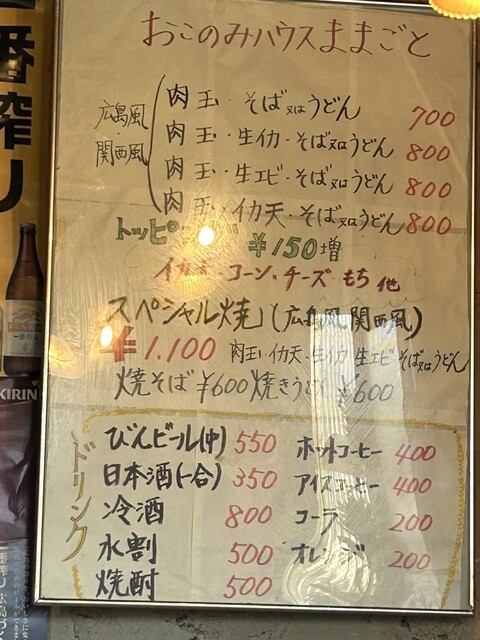 おこのみハウスままごと
広島風・関西風
肉・玉・そば又はうどん 700
肉・玉・生イカ・そば又はうどん 800
肉・玉・生エビ・そば又はうどん 800
肉・玉・イカ天・そば又はうどん 800
トッピング ¥150増
イカ天・コーン、チーズ・もち 他
スペシャル焼(広島風・関西風)
¥1.100 肉・玉・イカ天・生イカ・生エビ そば又はうどん
焼そば ¥600 焼きうどん ¥600
ドリンク
びんビール(中) 550
日本酒(一合) 350
冷酒 800
水割 500
焼酎 500
ホットコーヒー 400
アイスコーヒー 400
コーラ 200
オレンジ 200
一番搾り
KIRIN